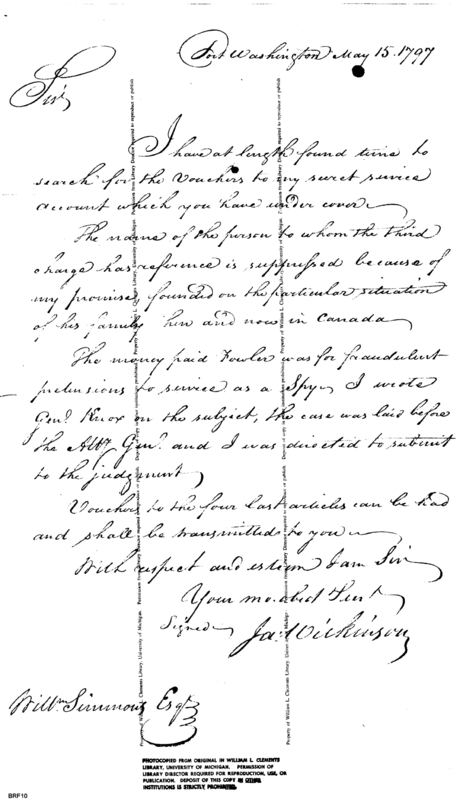 Fort Washington May 15. 1797
Sir,
I have at length found time to
search for the Vouchers to my secret service
account which you have under cover
The name of the person to whom the third
charge has reference is suppressed because of
my promise, founded on the particular situation
of his family then and now in Canada
The money paid Fowler was for fraudulent
pretensions to service as a Spy. I wrote
Genl. Knox on the subject, the case was laid before
the Atty Genl. and I was directed to submit
to the judgment
Vouchers to the four last articles can be had
and shall be transmitted to you
With respect and esteem I am Sir
Your mo. obed Servt
Signed Jas. Wilkinson
Willm Simmons Esqr
Property of William L. Clements Library, University of Michigan. Permission from Library Director required to reproduce or publish
PHOTOCOPIED FROM ORIGINAL IN WILLIAM L. CLEMENTS
LIBRARY, UNIVERSITY OF MICHIGAN. PERMISSION OF
LIBRARY DIRECTOR REQUIRED FOR REPRODUCTION, USE, OR
PUBLICATION. DEPOSIT OF THIS COPY IN OTHER
INSTITUTIONS IS STRICTLY PROHIBITED.
BRF10